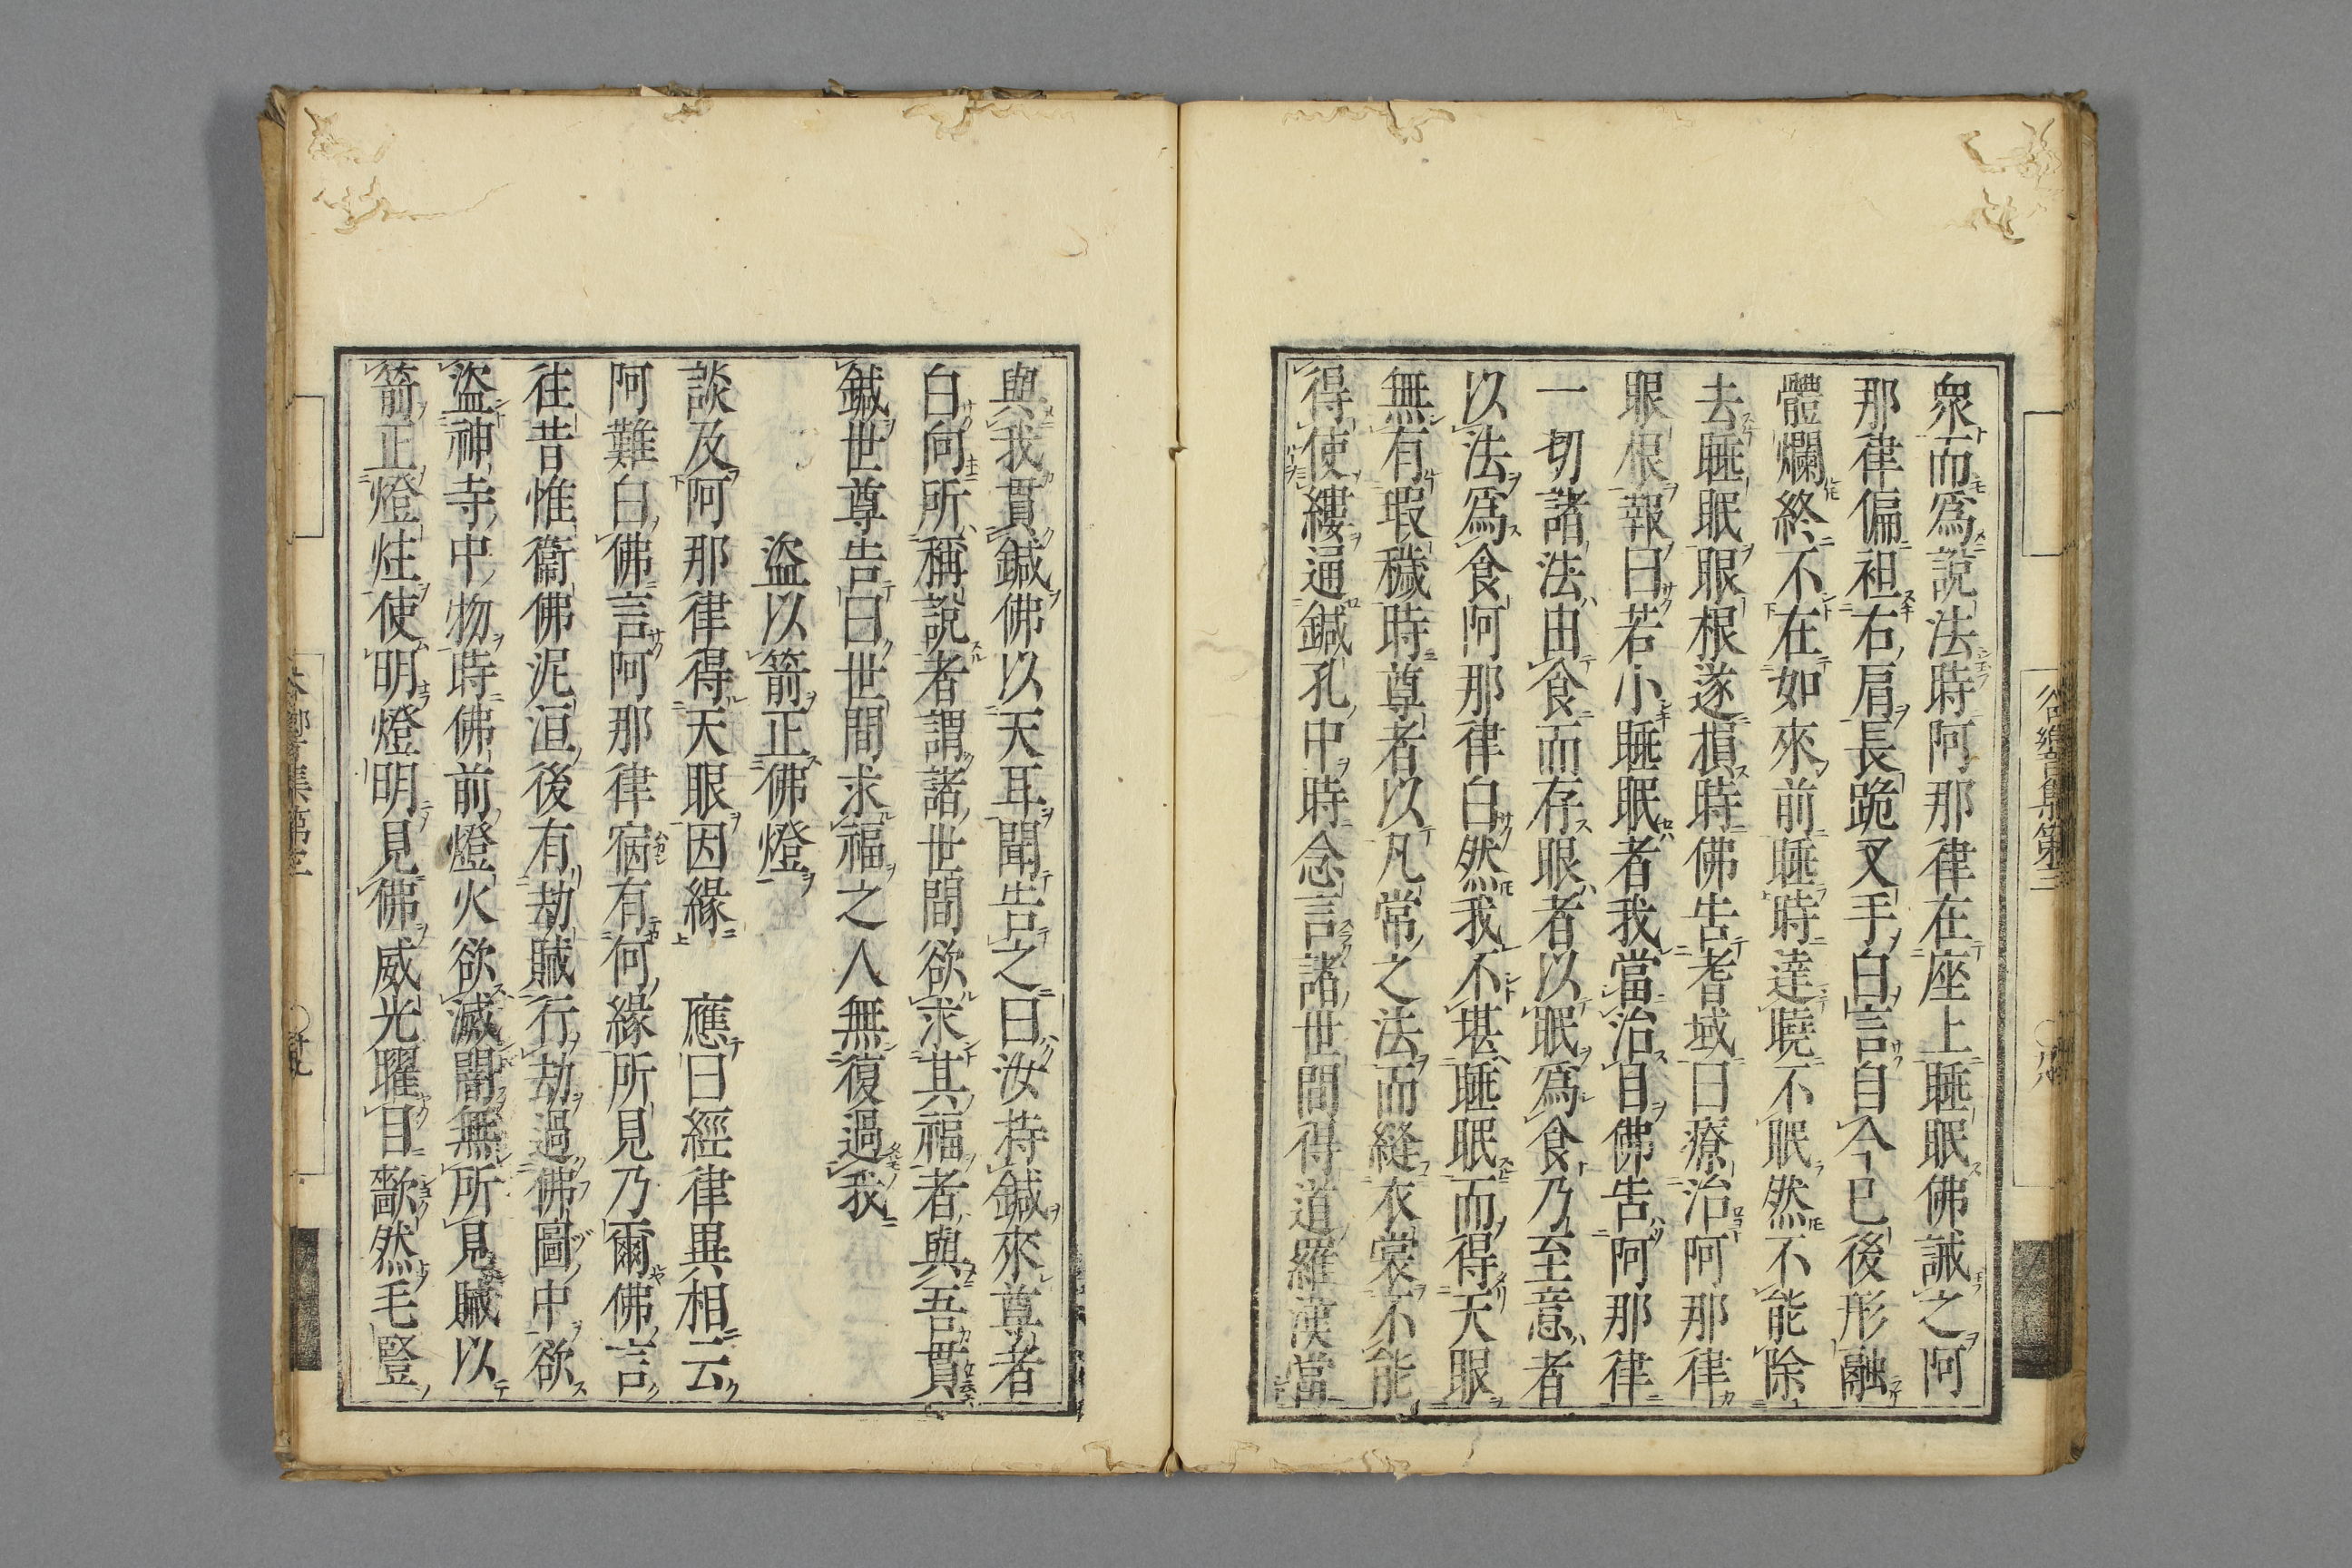 衆而爲說法時阿那律在座上睡眠佛誡之阿
那律偏袒右肩長跪叉手白言自今已後形融
體爛終不在如來前睡時達曉不眠然不能除
去睡眠眼根遂損時佛告耆域曰療治阿那律
眼根報曰若小睡眠者我當治目佛告阿那律
一切諸法由食而存眼者以眠爲食乃至意者
以法爲食阿那律白然我不堪睡眠而得天眼
無有瑕穢時尊者以凡常之法而縫衣裳不能
得使縷通鍼孔中時念言諸世間得道羅漢當
與我貫鍼佛以天耳聞告之曰汝持鍼來尊者
白向所稱說者謂諸世間欲求其福者與吾貫
鍼世尊告曰世間求福之人無復過我
盜以箭正佛燈
談及阿那律得天眼因緣 應曰經律異相云
阿難白佛言阿那律宿有何緣所見乃爾佛言
往昔惟衞佛泥洹後有劫賊行劫過佛圖中欲
盜神寺中物時佛前燈火欲滅闇無所見賊以
箭正燈炷使明燈明見佛威光曜目歡然毛豎